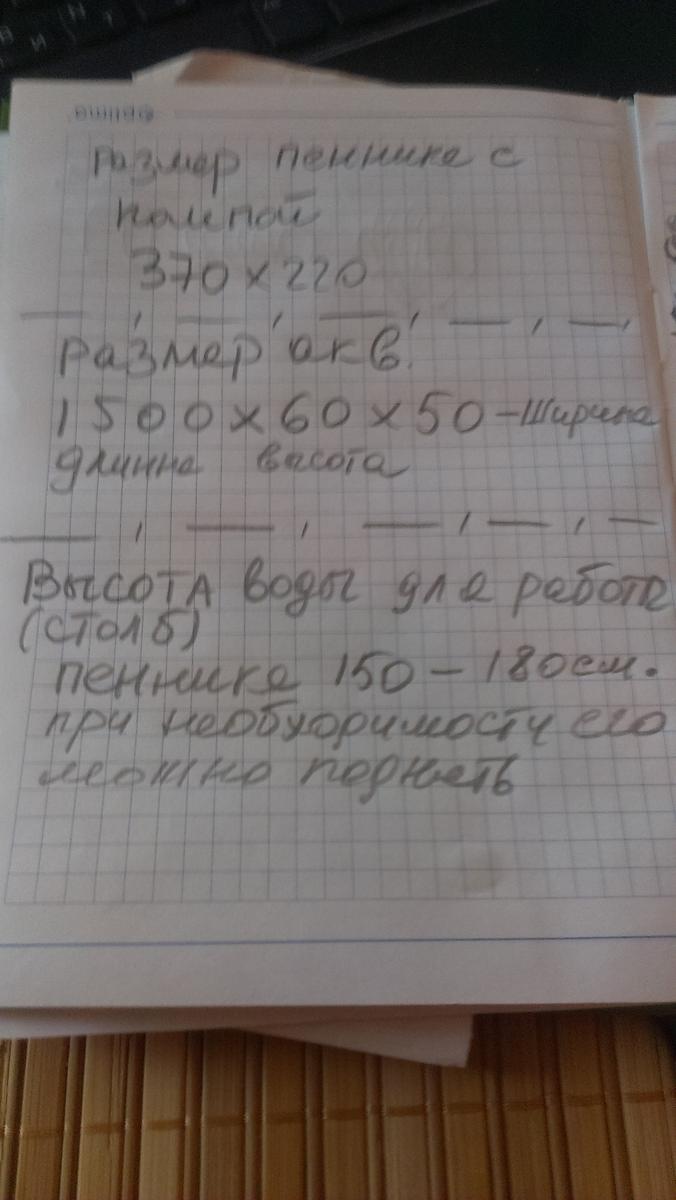 размер пенника с
помпой
370 х 220
размер акв.
1500 х 60 х 50 - ширина
длинна высота
Высота воды для работа
(столб)
пенника 150 - 180 см.
при необходимости его
можно поднять